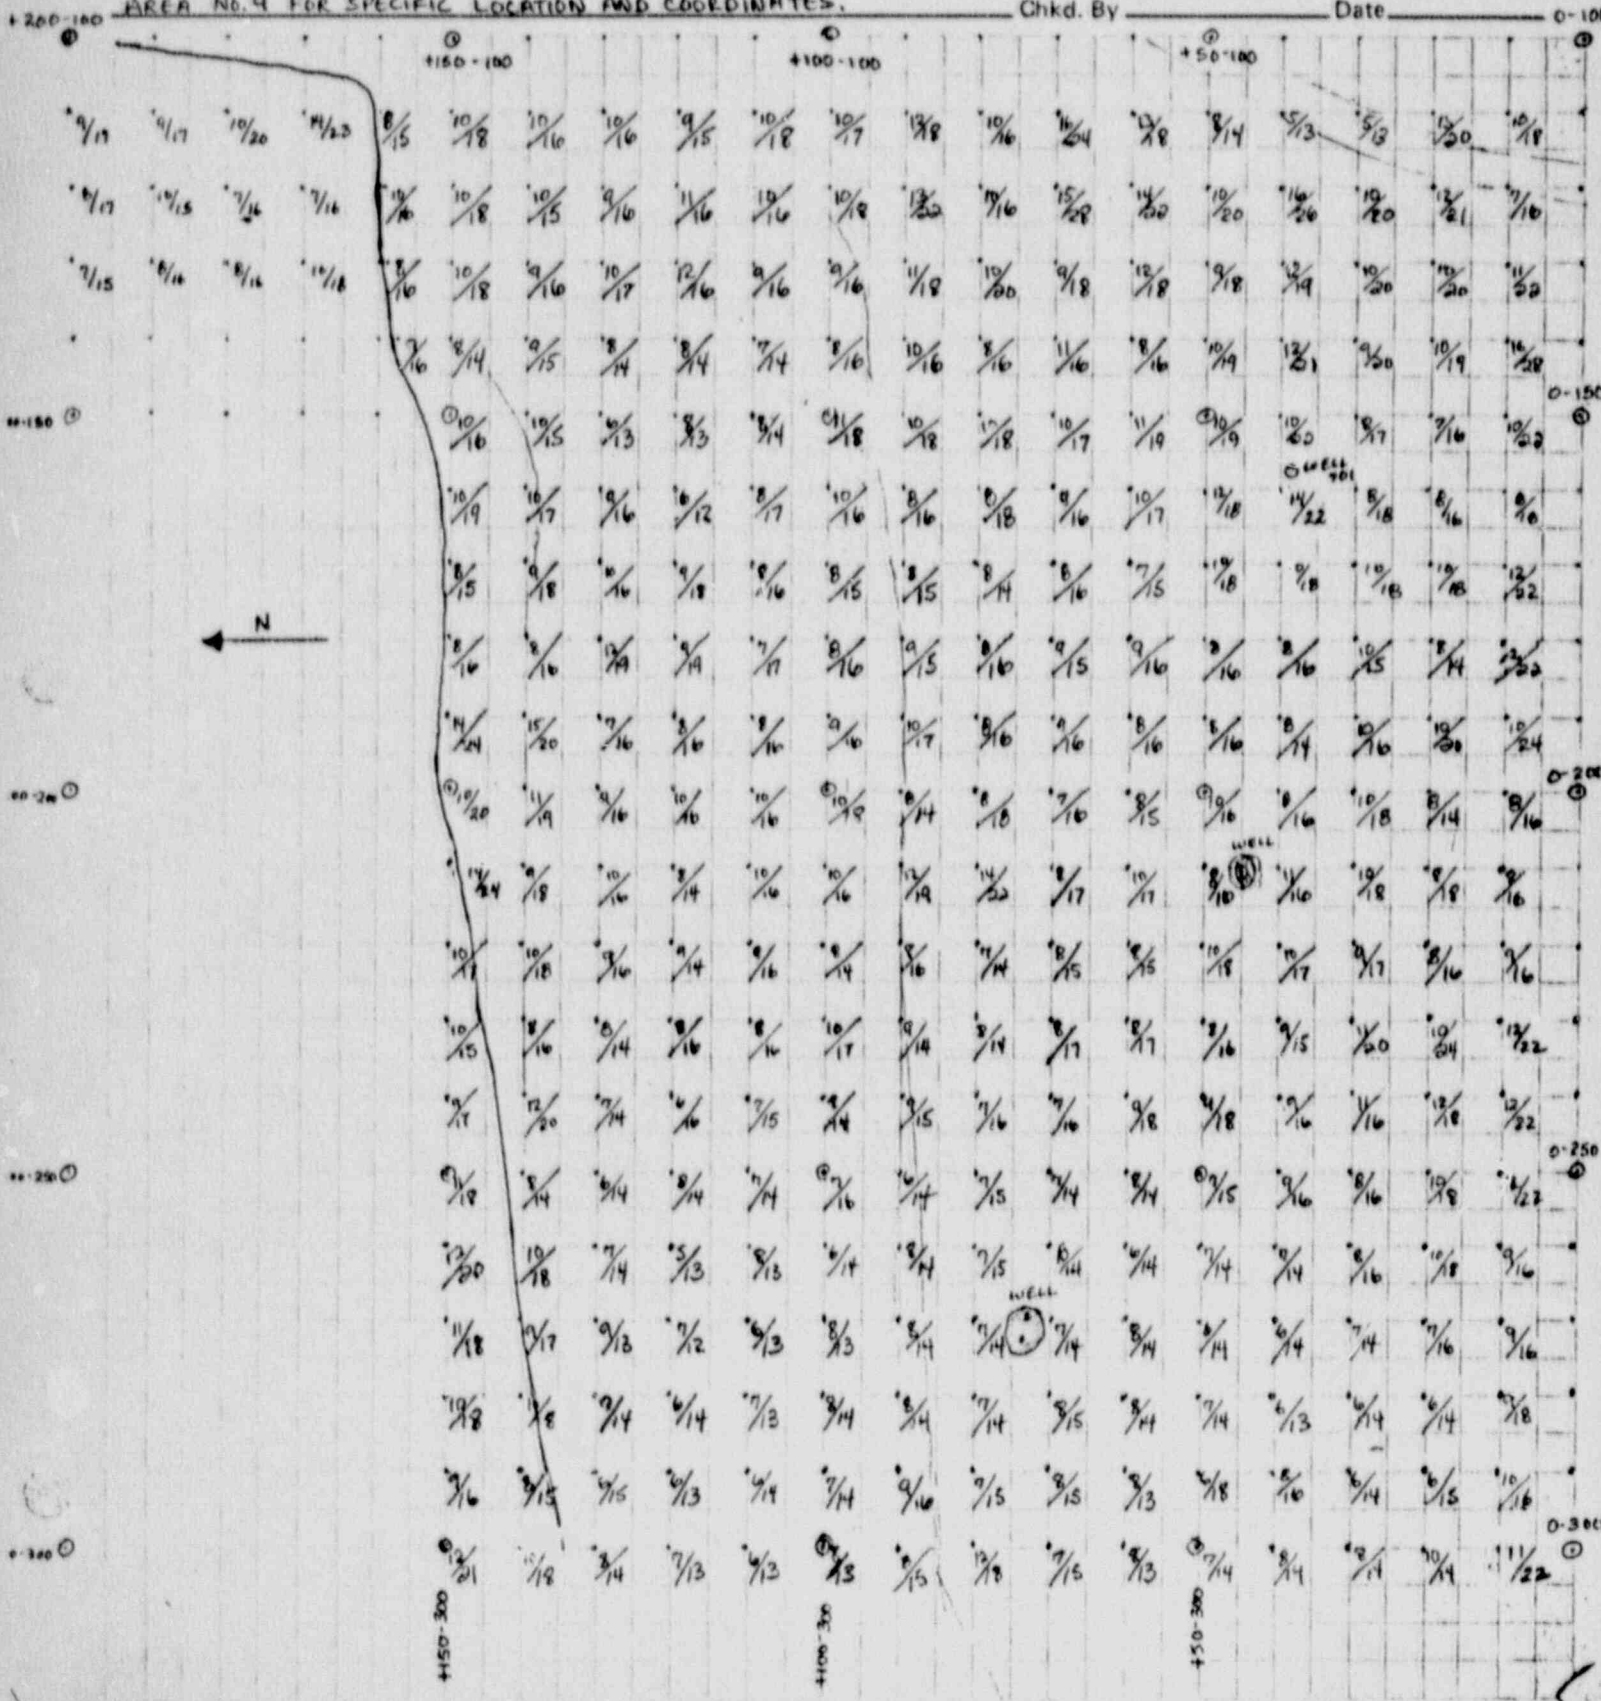 AREA NO. 4 FOR SPECIFIC LOCATION AND COORDINATES. Chkd. By Date
+200-100 +150-100 +100-100 +50-100 0-100
9/17 9/17 10/20 14/23 8/15 10/18 10/16 10/16 9/15 10/18 10/17 12/18 10/16 16/24 12/18 8/14 5/13 5/13 12/20 10/18
8/17 10/15 7/16 7/16 10/16 10/18 10/15 9/16 11/16 10/16 10/18 12/22 10/16 15/28 14/22 10/20 16/26 10/20 12/21 7/16
7/15 8/16 8/16 10/18 8/16 10/18 9/16 10/17 12/16 9/16 9/16 11/18 10/20 9/18 12/18 9/18 12/19 10/20 10/20 11/22
7/16 8/14 9/15 8/14 8/14 7/14 8/16 10/16 8/16 11/16 8/16 10/19 12/21 9/20 10/19 16/28
0-150
10/16 10/15 6/13 8/13 8/14 11/18 10/18 12/18 10/17 11/19 10/19 10/22 8/17 7/16 10/22
WELL
10/19 10/17 9/16 6/12 8/17 10/16 8/16 8/18 9/16 10/17 12/18 14/22 8/18 8/16 8/16
8/15 9/18 10/16 9/18 8/16 8/15 8/15 8/14 8/16 7/15 10/18 9/18 10/18 10/18 12/22
N
8/16 8/16 12/19 9/19 7/17 8/16 9/15 8/16 9/15 9/16 8/16 8/16 10/15 8/14 12/22
14/24 15/20 7/16 8/16 8/16 9/16 10/17 8/16 9/16 8/16 8/16 8/14 10/16 10/20 10/24
0-200
10/20 11/19 9/16 10/16 10/16 10/18 8/14 8/18 7/16 8/15 9/16 8/16 10/18 8/14 8/16
WELL
14/24 9/18 10/16 8/14 10/16 10/16 12/19 14/22 8/17 10/17 8/16 11/16 10/18 8/18 9/16
10/17 10/18 9/16 9/14 9/16 8/14 8/16 7/14 8/15 8/15 10/18 10/17 9/17 8/16 9/16
10/15 8/16 8/14 8/16 8/16 10/17 9/14 8/14 8/17 8/17 8/16 9/15 11/20 10/24 12/22
9/17 12/20 7/14 6/16 7/15 8/14 9/15 7/16 7/16 9/18 9/18 9/16 11/16 12/18 12/22
0-250
9/18 8/14 6/14 8/14 7/14 7/16 6/14 7/15 7/14 8/14 7/15 9/16 8/16 10/18 6/22
12/20 10/18 7/14 5/13 8/13 6/14 8/14 7/15 8/14 6/14 7/14 9/14 8/16 10/18 9/16
WELL
11/18 9/17 9/13 7/12 6/13 8/13 8/14 7/14 7/14 8/14 8/14 6/14 7/14 7/16 9/16
10/18 11/18 7/14 6/14 7/13 8/14 8/14 7/14 8/15 8/14 7/14 6/13 6/14 6/14 7/18
9/16 8/15 6/15 6/13 6/14 7/14 9/16 7/15 8/15 8/13 6/18 8/16 6/14 6/15 10/16
0-300 0-300
12/21 11/18 8/14 7/13 6/13 7/13 8/15 12/18 7/15 8/13 7/14 8/14 8/14 10/14 11/22
+150-300 +100-300 +50-300